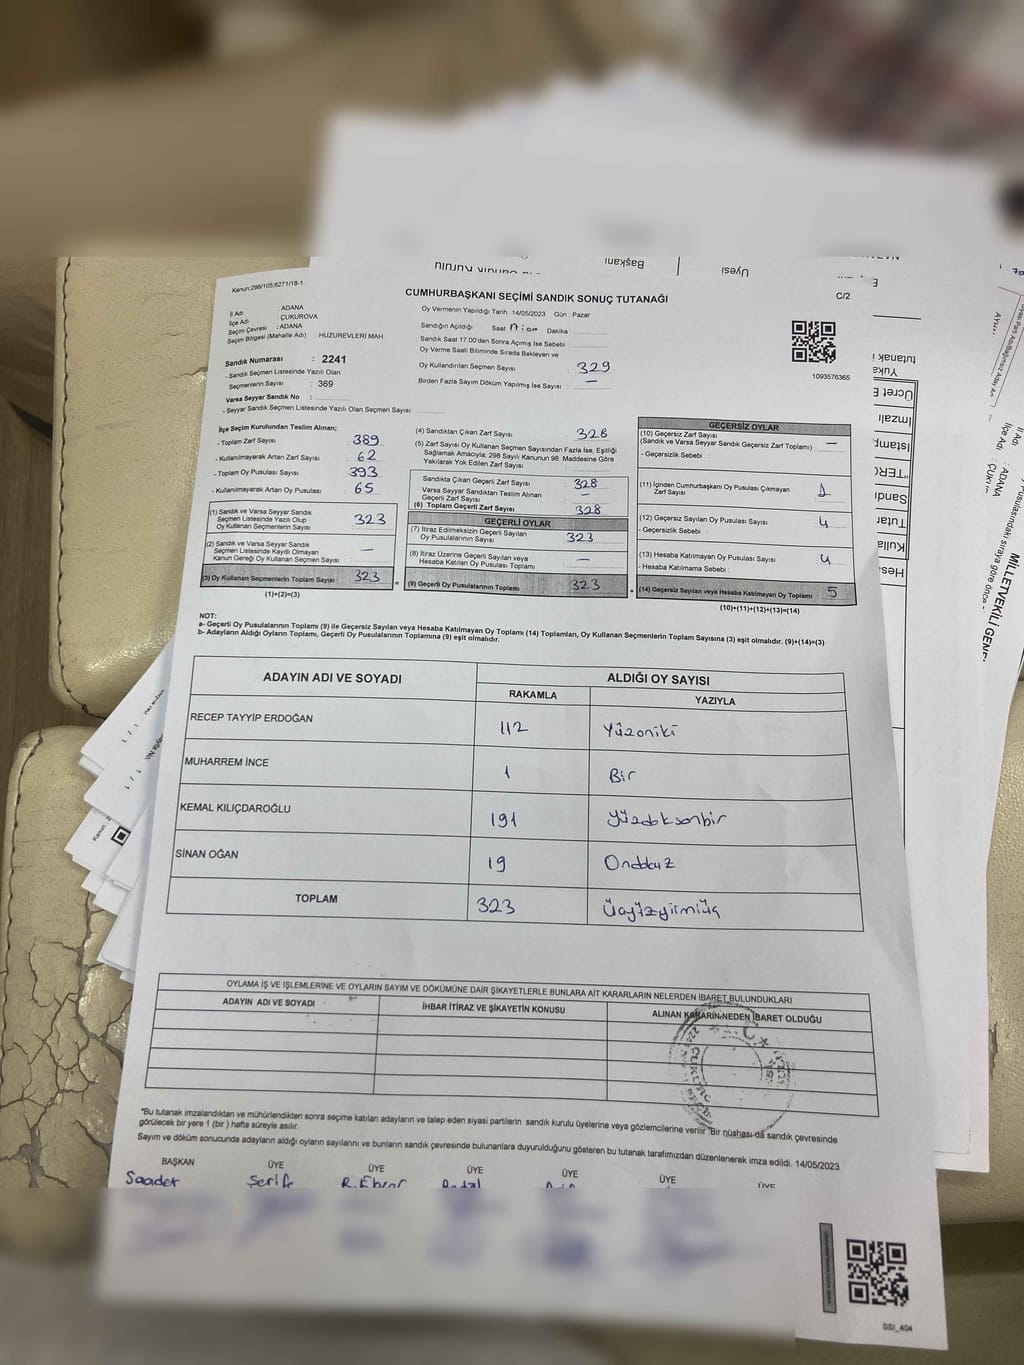 Başkanı
Üyesi
Kanun:298/105,6271/18-1
CUMHURBAŞKANI SEÇİMİ SANDIK SONUÇ TUTANAĞI
C/2
İl Adı : ADANA
İlçe Adı : ÇUKUROVA
Seçim Çevresi : ADANA
Seçim Bölgesi (Mahalle Adı) : HUZUREVLERİ MAH
Sandık Numarası : 2241
- Sandık Seçmen Listesinde Yazılı Olan
Seçmenlerin Sayısı : 369
Varsa Seyyar Sandık No :
- Seyyar Sandık Seçmen Listesinde Yazılı Olan Seçmen Sayısı:
Oy Vermenin Yapıldığı Tarih :14/05/2023 Gün : Pazar
Sandığın Açıldığı Saat 17:00 Dakika :
Sandık Saat 17.00'den Sonra Açılmış İse Sebebi :
Oy Verme Saati Bitiminde Sırada Bekleyen ve
Oy Kullandırılan Seçmen Sayısı : 329
Birden Fazla Sayım Döküm Yapılmış İse Sayısı : —
1093576365
İlçe Seçim Kurulundan Teslim Alınan;
- Toplam Zarf Sayısı : 389
- Kullanılmayarak Artan Zarf Sayısı : 62
- Toplam Oy Pusulası Sayısı : 393
- Kullanılmayarak Artan Oy Pusulası : 65
(1) Sandık ve Varsa Seyyar Sandık
Seçmen Listesinde Yazılı Olup
Oy Kullanan Seçmenlerin Sayısı : 323
(2) Sandık ve Varsa Seyyar Sandık
Seçmen Listesinde Kayıtlı Olmayan
Kanun Gereği Oy Kullanan Seçmen Sayısı : —
(3) Oy Kullanan Seçmenlerin Toplam Sayısı : 323
(1)+(2)=(3)
(4) Sandıktan Çıkan Zarf Sayısı : 328
(5) Zarf Sayısı Oy Kullanan Seçmen Sayısından Fazla İse, Eşitliği
Sağlamak Amacıyla, 298 Sayılı Kanunun 98. Maddesine Göre
Yakılarak Yok Edilen Zarf Sayısı :
Sandıkta Çıkan Geçerli Zarf Sayısı : 328
Varsa Seyyar Sandıktan Teslim Alınan
Geçerli Zarf Sayısı : —
(6) Toplam Geçerli Zarf Sayısı : 328
GEÇERLİ OYLAR
(7) İtiraz Edilmeksizin Geçerli Sayılan
Oy Pusulalarının Sayısı : 323
(8) İtiraz Üzerine Geçerli Sayılan veya
Hesaba Katılan Oy Pusulası Toplamı : —
(9) Geçerli Oy Pusulalarının Toplamı : 323
GEÇERSİZ OYLAR
(10) Geçersiz Zarf Sayısı
(Sandık ve Varsa Seyyar Sandık Geçersiz Zarf Toplamı) : —
- Geçersizlik Sebebi :
(11) İçinden Cumhurbaşkanı Oy Pusulası Çıkmayan
Zarf Sayısı : 1
(12) Geçersiz Sayılan Oy Pusulası Sayısı : 4
- Geçersizlik Sebebi :
(13) Hesaba Katılmayan Oy Pusulası Sayısı : 4
- Hesaba Katılmama Sebebi :
(14) Geçersiz Sayılan veya Hesaba Katılmayan Oy Toplamı : 5
(10)+(11)+(12)+(13)=(14)
NOT:
a- Geçerli Oy Pusulalarının Toplamı (9) ile Geçersiz Sayılan veya Hesaba Katılmayan Oy Toplamı (14) Toplamları, Oy Kullanan Seçmenlerin Toplam Sayısına (3) eşit olmalıdır. (9)+(14)=(3)
b- Adayların Aldığı Oyların Toplamı, Geçerli Oy Pusulalarının Toplamına (9) eşit olmalıdır.
ADAYIN ADI VE SOYADI
ALDIĞI OY SAYISI
RAKAMLA
YAZIYLA
RECEP TAYYİP ERDOĞAN 112 Yüzoniki
MUHARREM İNCE 1 Bir
KEMAL KILIÇDAROĞLU 191 Yüzdoksanbir
SİNAN OĞAN 19 Ondokuz
TOPLAM 323 Üçyüzyirmiüç
OYLAMA İŞ VE İŞLEMLERİNE VE OYLARIN SAYIM VE DÖKÜMÜNE DAİR ŞİKAYETLERLE BUNLARA AİT KARARLARIN NELERDEN İBARET BULUNDUKLARI
ADAYIN ADI VE SOYADI
İHBAR İTİRAZ VE ŞİKAYETİN KONUSU
ALINAN KARARIN NEDEN İBARET OLDUĞU
*Bu tutanak imzalandıktan ve mühürlendikten sonra seçime katılan adayların ve talep eden siyasi partilerin sandık kurulu üyelerine veya gözlemcilerine verilir *Bir nüshası da sandık çevresinde
görülecek bir yere 1 (bir ) hafta süreyle asılır.
Sayım ve döküm sonucunda adayların aldığı oyların sayılarını ve bunların sandık çevresinde bulunanlara duyurulduğunu gösteren bu tutanak tarafımızdan düzenlenerek imza edildi. 14/05/2023
BAŞKAN ÜYE ÜYE ÜYE ÜYE ÜYE ÜYE
Saadet Şerife R.Ebrar
SSI_404